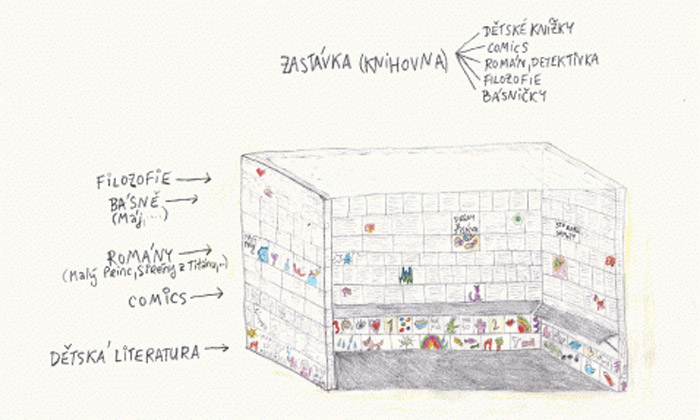 ZASTÁVKA (KNIHOVNA)
DĚTSKÉ KNIŽKY
COMICS
ROMÁN, DETEKTIVKA
FILOZOFIE
BÁSNIČKY
FILOZOFIE
BÁSNĚ
(Máj, ...)
ROMÁNY
(Malý Princ, Sirény z Titanu,..)
COMICS
DĚTSKÁ LITERATURA